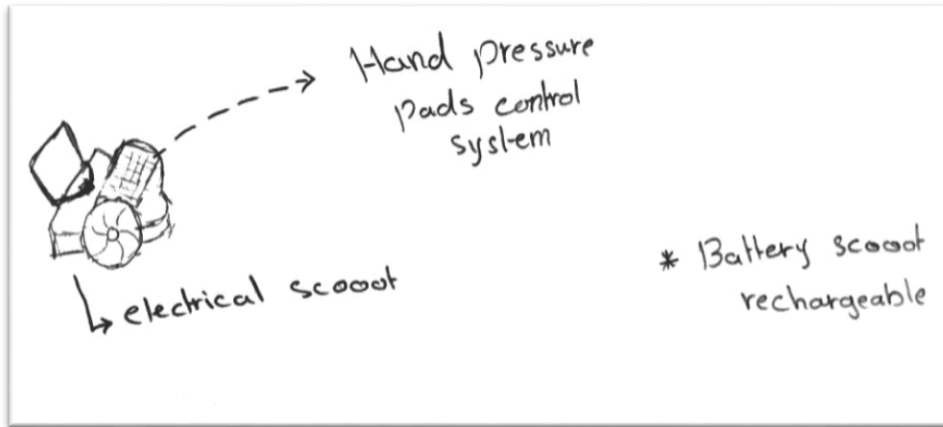 Hand pressure
pads control
system
electrical scooot
* Battery scooot
rechargeable